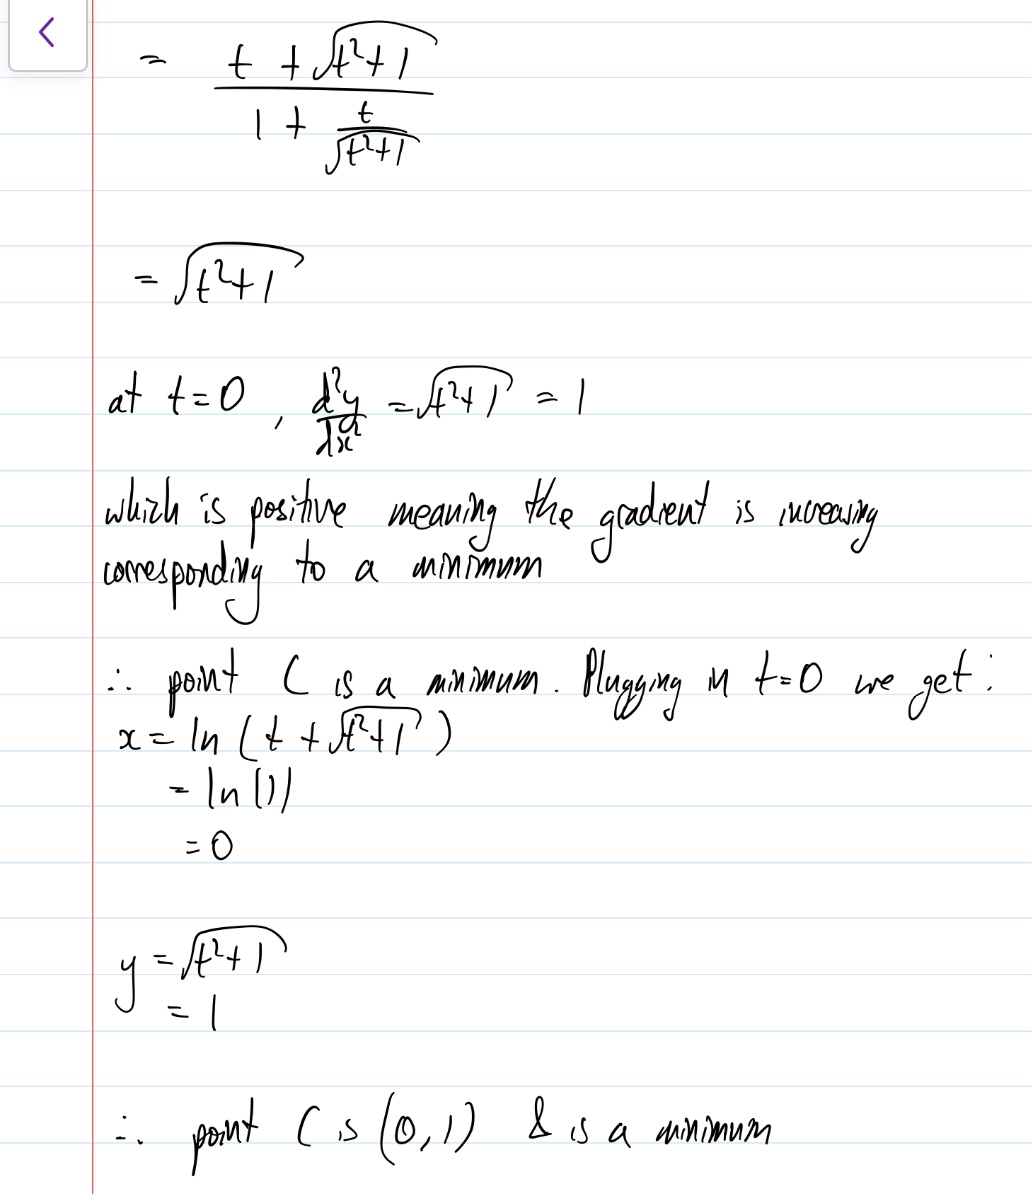 = (t + √(t²+1)) / (1 + t/√(t²+1))
= √(t²+1)
at t=0, d²y/dx² = √(t²+1) = 1
which is positive meaning the gradient is increasing
corresponding to a minimum
∴ point C is a minimum. Plugging in t=0 we get:
x = ln (t + √(t²+1))
= ln(1)
= 0
y = √(t²+1)
= 1
∴ point C is (0,1) & is a minimum